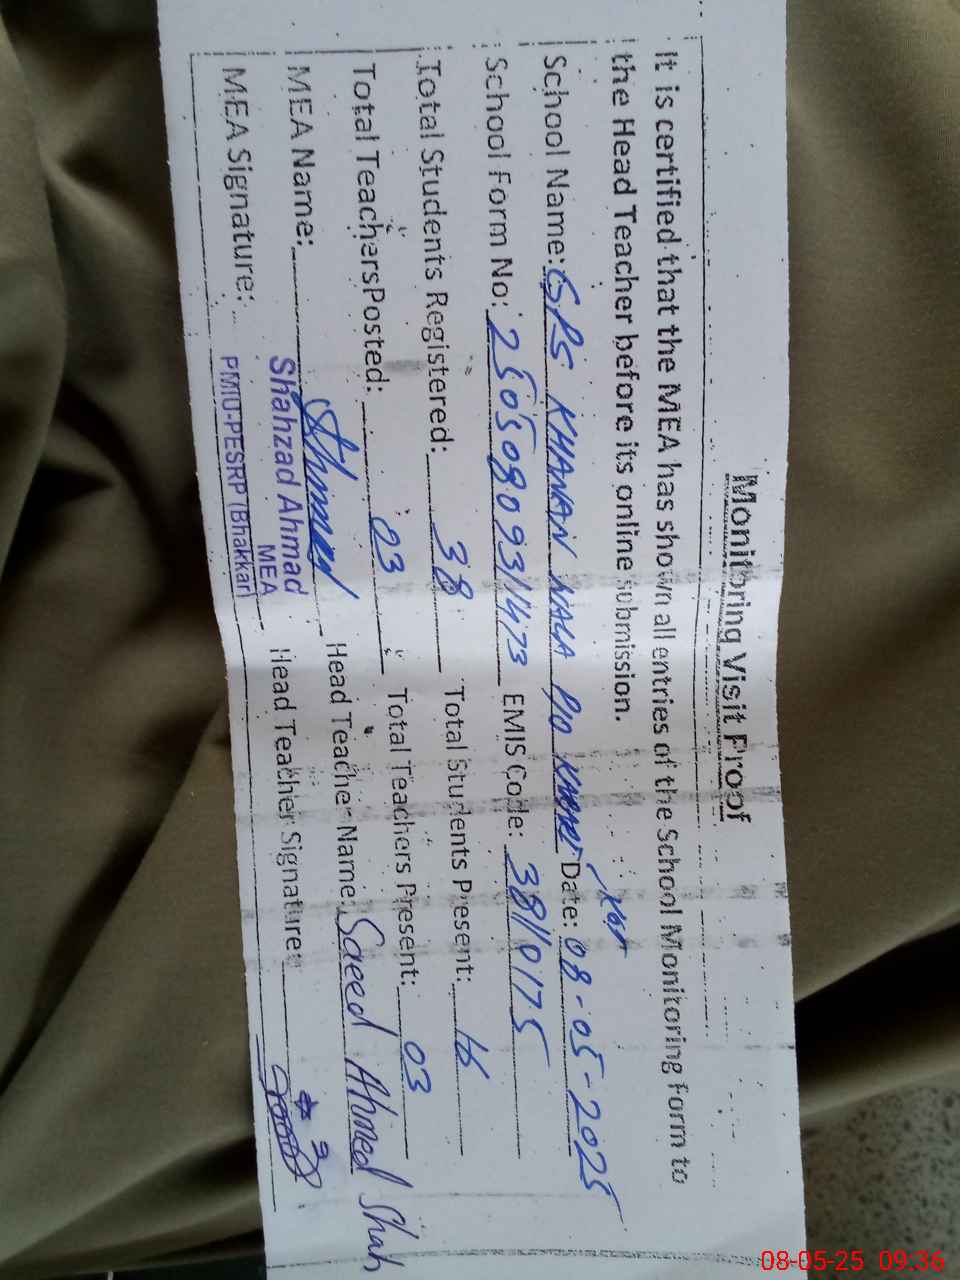 Monitoring Visit Proof
It is certified that the MEA has shown all entries of the School Monitoring Form to
the Head Teacher before its online submission.
School Name: GPS KHANAN WALA P/O Date: 08-05-2025
School Form No: 25050809311473 EMIS Code: 38110175
Total Students Registered: 38 Total Students Present: 16
Total Teachers Posted: 03 Total Teachers Present: 03
MEA Name: Ahmed Head Teacher Name: Saeed Ahmed Shah
MEA Signature: Shahzad Ahmad Head Teacher Signature:
MEA
PMIU-PESRP (Bhakkar)
08-05-25 09:36